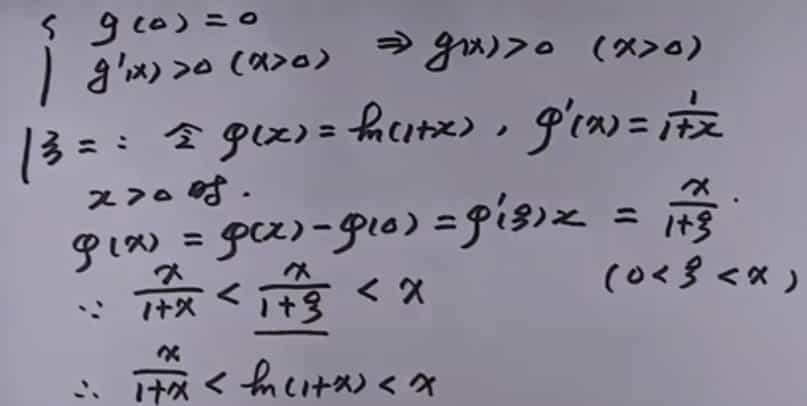 { g(0)=0
g'(x)>0 (x>0) ⇒ g(x)>0 (x>0)
证二: 令 φ(x)=ln(1+x), φ'(x)=1/(1+x)
x>0时.
φ(x)=φ(x)-φ(0)=φ'(ξ)x = x/(1+ξ).
(0<ξ<x)
∵ x/(1+x) < x/(1+ξ) < x
∴ x/(1+x) < ln(1+x) < x